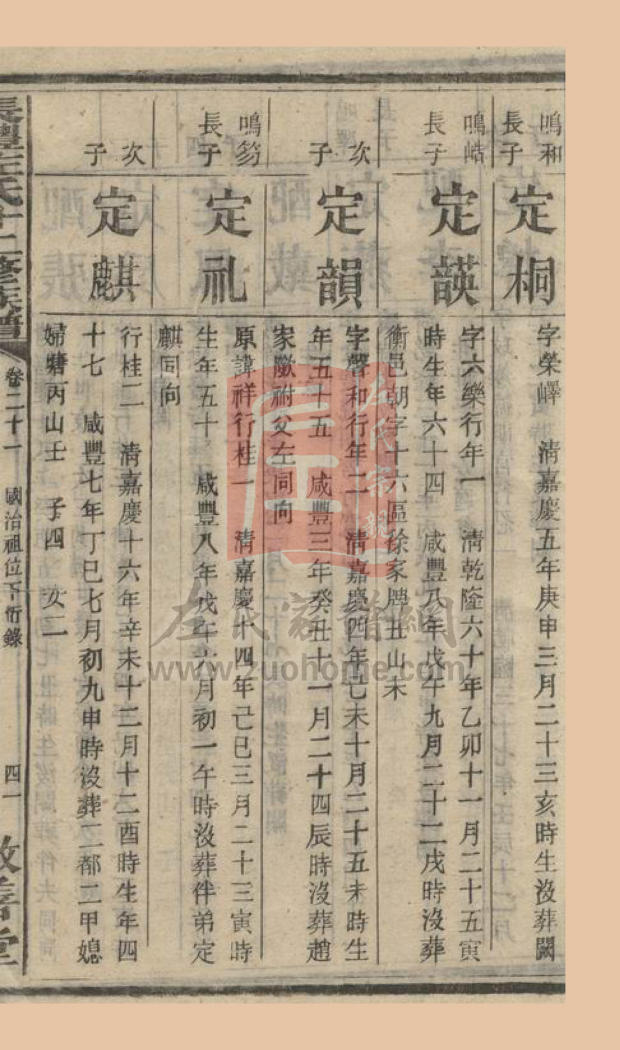 鳴和長子
定桐
字榮嶧 清嘉慶五年庚申三月二十三亥時生沒葬闕
鳴皓長子
定韺
字六樂行年一 清乾隆六十年乙卯十一月二十五寅
時生年六十四 咸豐八年戊午九月二十二戌時沒葬
衡邑朝字十六區徐家 丑山未
次子
定韻
字聲和行年二 清嘉慶四年己未十月二十五未時生
年五十五 咸豐三年癸丑十一月二十四辰時沒葬趙
家 祔父左同向
鳴笏長子
定礼
原諱祥行桂一 清嘉慶十四年己巳三月二十三寅時
生年五十 咸豐八年戊午六月初一午時沒葬伴弟定
麒同向
次子
定麒
行桂二 清嘉慶十六年辛未十二月十二酉時生年四
十七 咸豐七年丁巳七月初九申時沒葬二都二甲媳
婦塘丙山壬 子四 女二
長豐左氏十二修族譜 卷二十一 國治祖位下衍錄 四一 敦善堂
左氏家譜網
www.zuohome.com